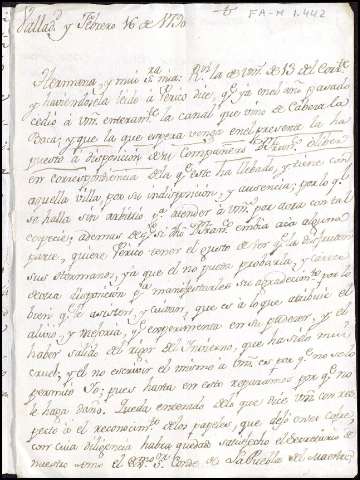 FA-M 1.442
Vallad. y Febrero 16 de 17
Hermana, y mui Sra mia: Reví la de Vm. de 13 del Corte
y haviendosela leido á Perico dice, qe ya en el año pasado
cedió á Vm. enteramte la canal que vino de Cabeza la
Baca; y que la que espera venga en el presente la ha
puesto á disposicion de su Compañero
en correspondencia de la qe este ha llebado, y tiene con
aquella villa, por su indisposicion, y ausencia; por lo qe
se halla sin arbitrio pa atender á Vm. por aora con tal
especie; ademas de qe si dho embia aca alguna
parte, quiere Perico tener el gusto de ver qe la disfruten
sus Hermanos, ya que el no pueda probarla, y carece
de otra disposicion pa manifestarles su agradecimto por lo
bien qe le asisten, y cuidan; que es á lo que atribuie el
alivio, y mejoria, qe experimenta en su padecer, y el
haber salido del rigor del Imbierno, que ha sido mui
cruel; y el no escribir el mismo á Vm. es por qe no se lo
permito Yo; pues hasta en esto reparamos por qe no
le haga daño. Queda enterado de lo que dice Vm. con res-
pecto á el reconocimto de los papeles, que dejó en ese
con cuia diligencia habra quedado satisfecho el Secretario de
nuestro amo el Exmo Sr Conde de la Puebla del Maestre